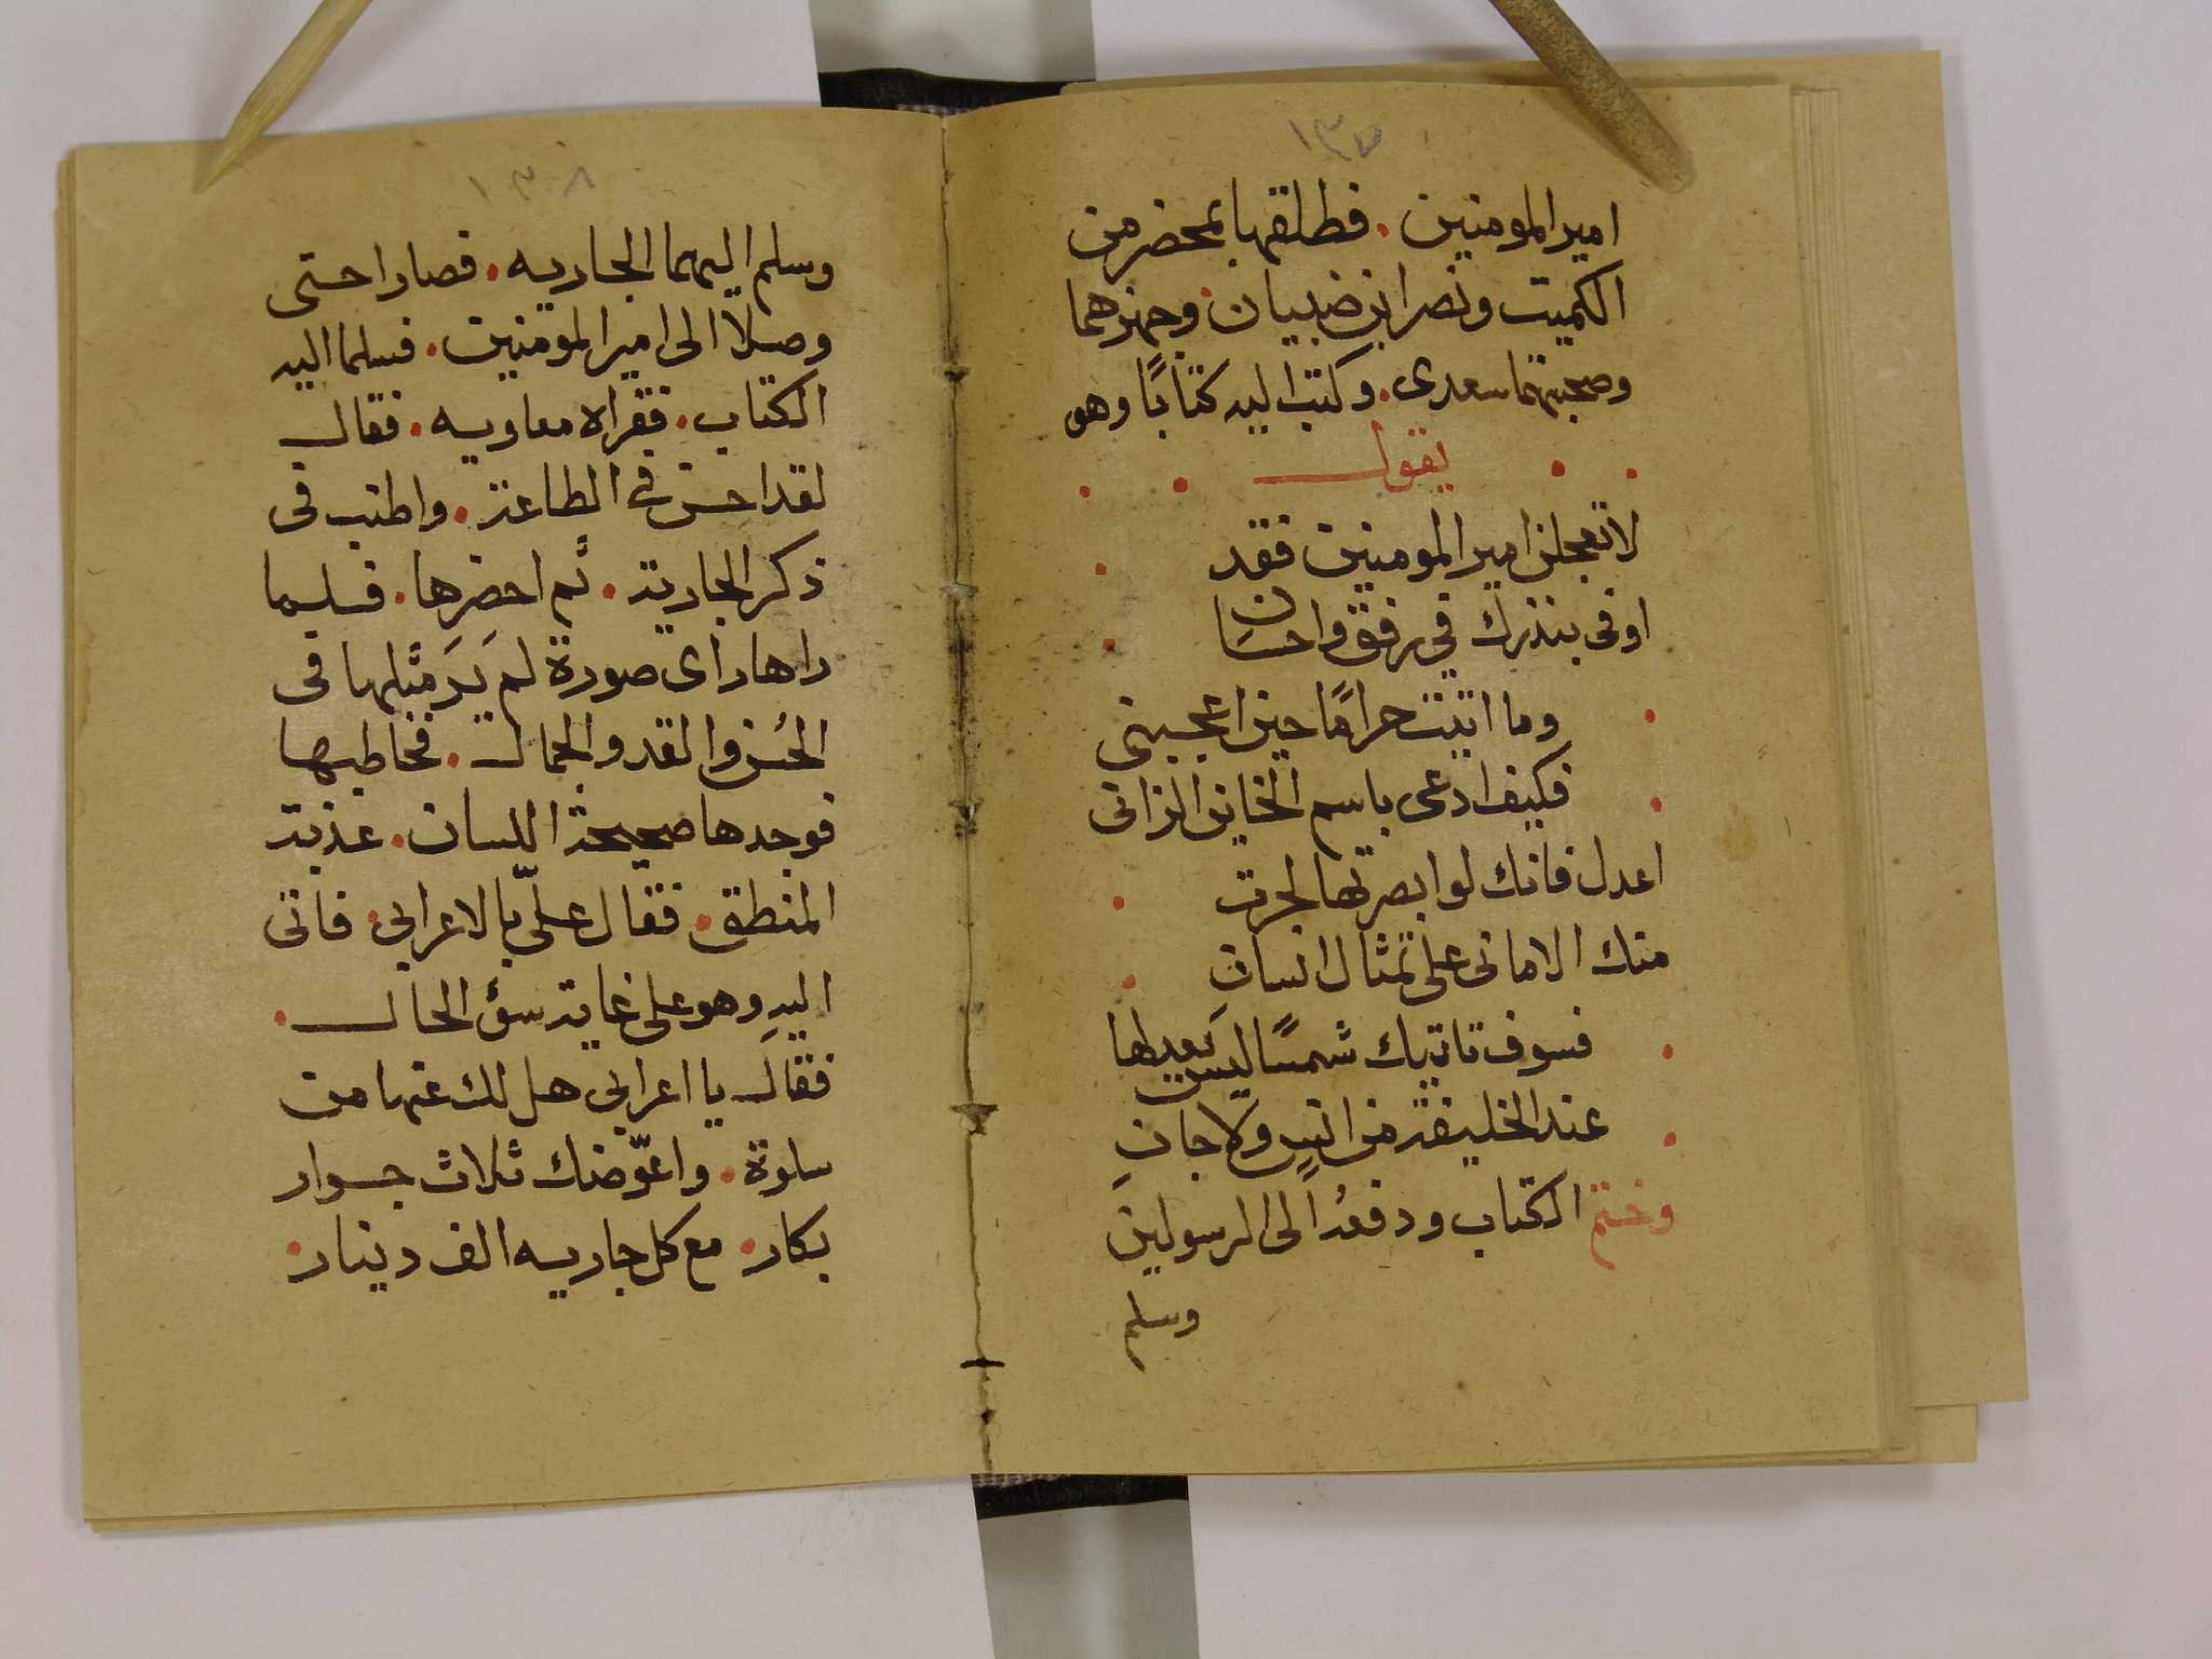 ١٣٧
امير المومنين. فطلقها بمحضر من
الكميت ونصر ابن ضبيان. وجهزهما
وصحبتهما سعدى. وكتب اليه كتابًا وهو
يقول
لا تعجلن امير المومنين فقد
اوفى بنذرك في رفق واحسان
وما اتيت حرامًا حين اعجبنى
فكيف ادعى باسم الخاين الزانى
اعدل فانك لو ابصرتها لجرت
منك الامانى على تمثال انسان
فسوف تاتيك شمسًا ليس يعدلها
عند الخليفة من انسٍ ولا جانِ
وختم الكتاب ودفعه الى الرسولين
وسلم
١٣٨
وسلم اليهما الجاريه. فصارا حتى
وصلا الى امير المومنين. فسلما اليه
الكتاب. فقراه معاويه. فقال
لقد احسن فى الطاعة. واطنب فى
ذكر الجارية. ثم احضرها. فلما
راها راى صورة لم يَرَ مثلها فى
الحُسن والقد والجمال. فخاطبها
فوجدها صحيحة اللسان. عذبة
المنطق. فقال علىّ بالاعرابى. فاتى
اليهِ وهو على غاية سؤ الحال.
فقال يا اعرابى هل لك عنها من
سلوة. واعوّضك ثلاث جوار
بكار. مع كل جاريه الف دينار.